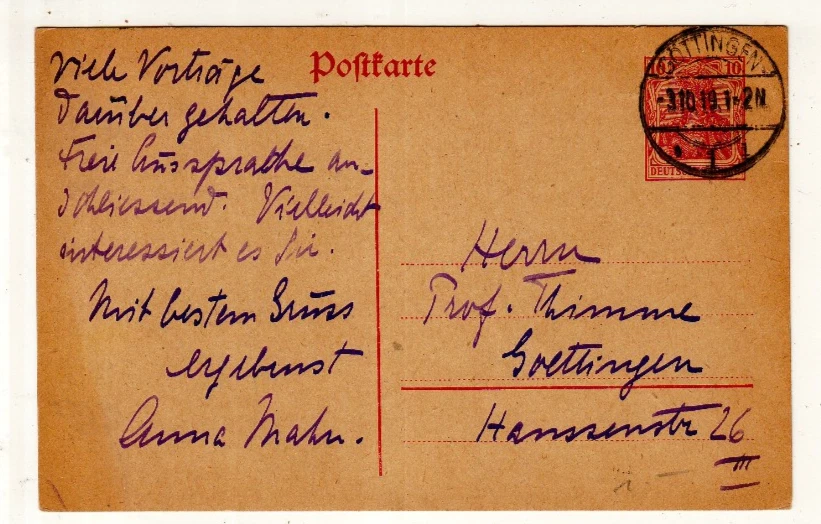 Postkarte
Viele Vorträge
darüber gehalten.
Freie Aussprache an-
schliessend. Vielleicht
interessiert es Sie.
Mit bestem Gruss
ergebenst
Anna Mahn.
GÖTTINGEN
-3.10.19.1-2N.
1
10 10
DEUTSCHES
Herrn
Prof. Thimme
Goettingen
Hanssenstr 26
III